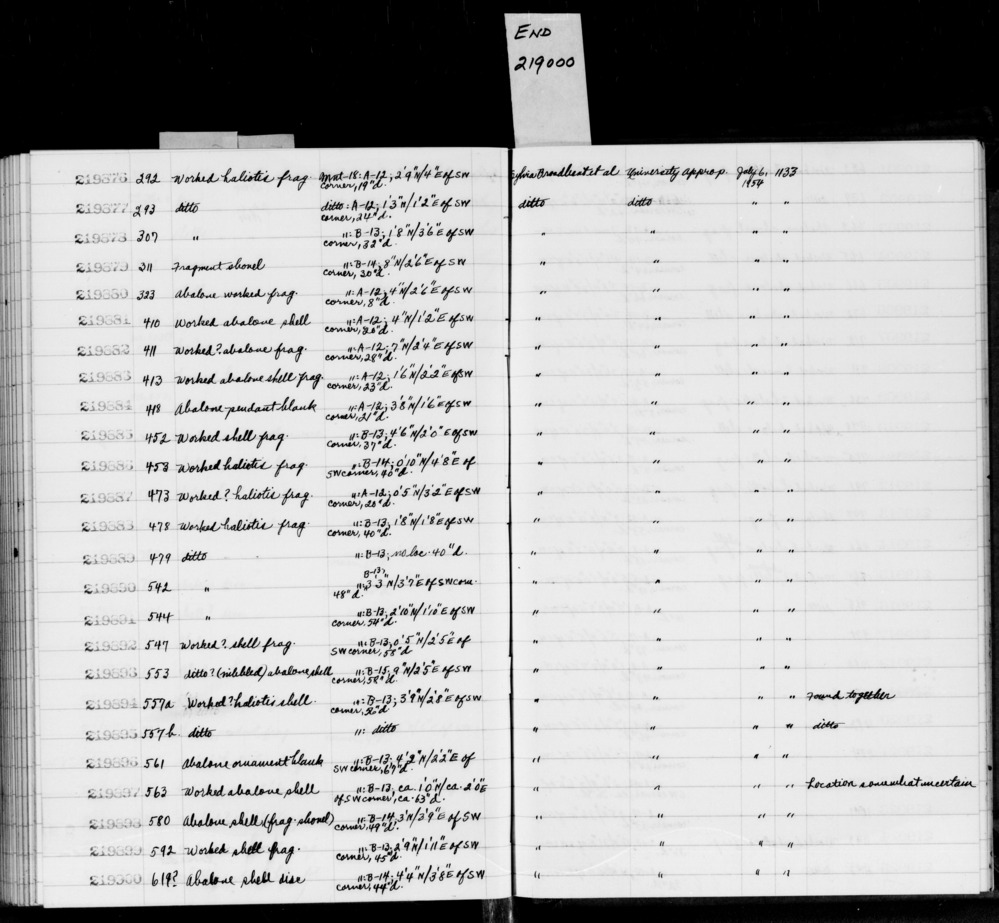 END
219000
219876 292 Worked haliotis frag. Mnt-18: A-12; 2'9"N/4"E of SW Sylvia Broadbent et al University approp. July 6, 1133
corner, 19"d. 1954
219877 293 ditto ditto: A-12; 1'3"N/1'2"E of SW ditto ditto " "
corner, 24"d.
219878 307 " ": B-13; 1'8"N/3'6"E of SW " " " "
corner, 32"d.
219879 311 Fragment shovel ": B-14; 8"N/2'6"E of SW " " " "
corner, 30"d.
219880 323 Abalone worked frag. ": A-12; 4"N/2'6"E of SW " " " "
corner, 8"d.
219881 410 Worked abalone shell ": A-12; 4"N/1'2"E of SW " " " "
corner, 20"d.
219882 411 Worked? abalone frag. ": A-12; 7"N/2'4"E of SW " " " "
corner, 28"d.
219883 413 Worked abalone shell frag. ": A-12; 1'6"N/2'2"E of SW " " " "
corner, 23"d.
219884 418 Abalone-pendant blank ": A-12; 3'8"N/1'6"E of SW " " " "
corner, 21"d.
219885 452 Worked shell frag. ": B-13; 4'6"N/2'0"E of SW " " " "
corner, 37"d.
219886 453 Worked haliotis frag. ": B-14; 0'10"N/4'8"E of " " " "
SW corner, 40"d.
219887 473 Worked? haliotis frag. ": A-12; 0'5"N/3'2"E of SW " " " "
corner, 20"d.
219888 478 Worked haliotis frag. ": B-13; 1'8"N/1'8"E of SW " " " "
corner, 40"d.
219889 479 ditto ": B-13; no loc. 40"d. " " " "
B-13?
219890 542 " ": 3'3"N/3'7"E of SW corn. " " " "
48"d.
219891 544 " ": B-13; 2'10"N/1'10"E of SW " " " "
corner, 54"d.
219892 547 Worked? shell frag. ": B-13; 0'5"N/2'5"E of " " " "
SW corner, 58"d.
219893 553 ditto? (nibbled) abalone shell ": B-15; 9"N/2'5"E of SW " " " "
corner, 58"d.
219894 557a Worked? haliotis shell. ": B-13; 3'9"N/2'8"E of SW " " " " Found together
corner, 56"d.
219895 557b ditto ": ditto " " " " ditto
219896 561 Abalone ornament blank ": B-13; 4'2"N/2'2"E of " " " "
SW corner, 67"d.
219897 563 Worked abalone shell ": B-13; ca. 1'0"N/ca. 2'0"E " " " " Location somewhat uncertain
of SW corner, ca. 63"d.
219898 580 Abalone shell (frag. shovel) ": B-14; 3'N/3'9"E of SW " " " "
corner, 49"d.
219899 592 Worked shell frag. ": B-13; 2'9"N/1'11"E of SW " " " "
corner, 45"d.
219900 619? Abalone shell disc ": B-14; 4'4"N/3'8"E of SW " " " "
corner, 44"d.